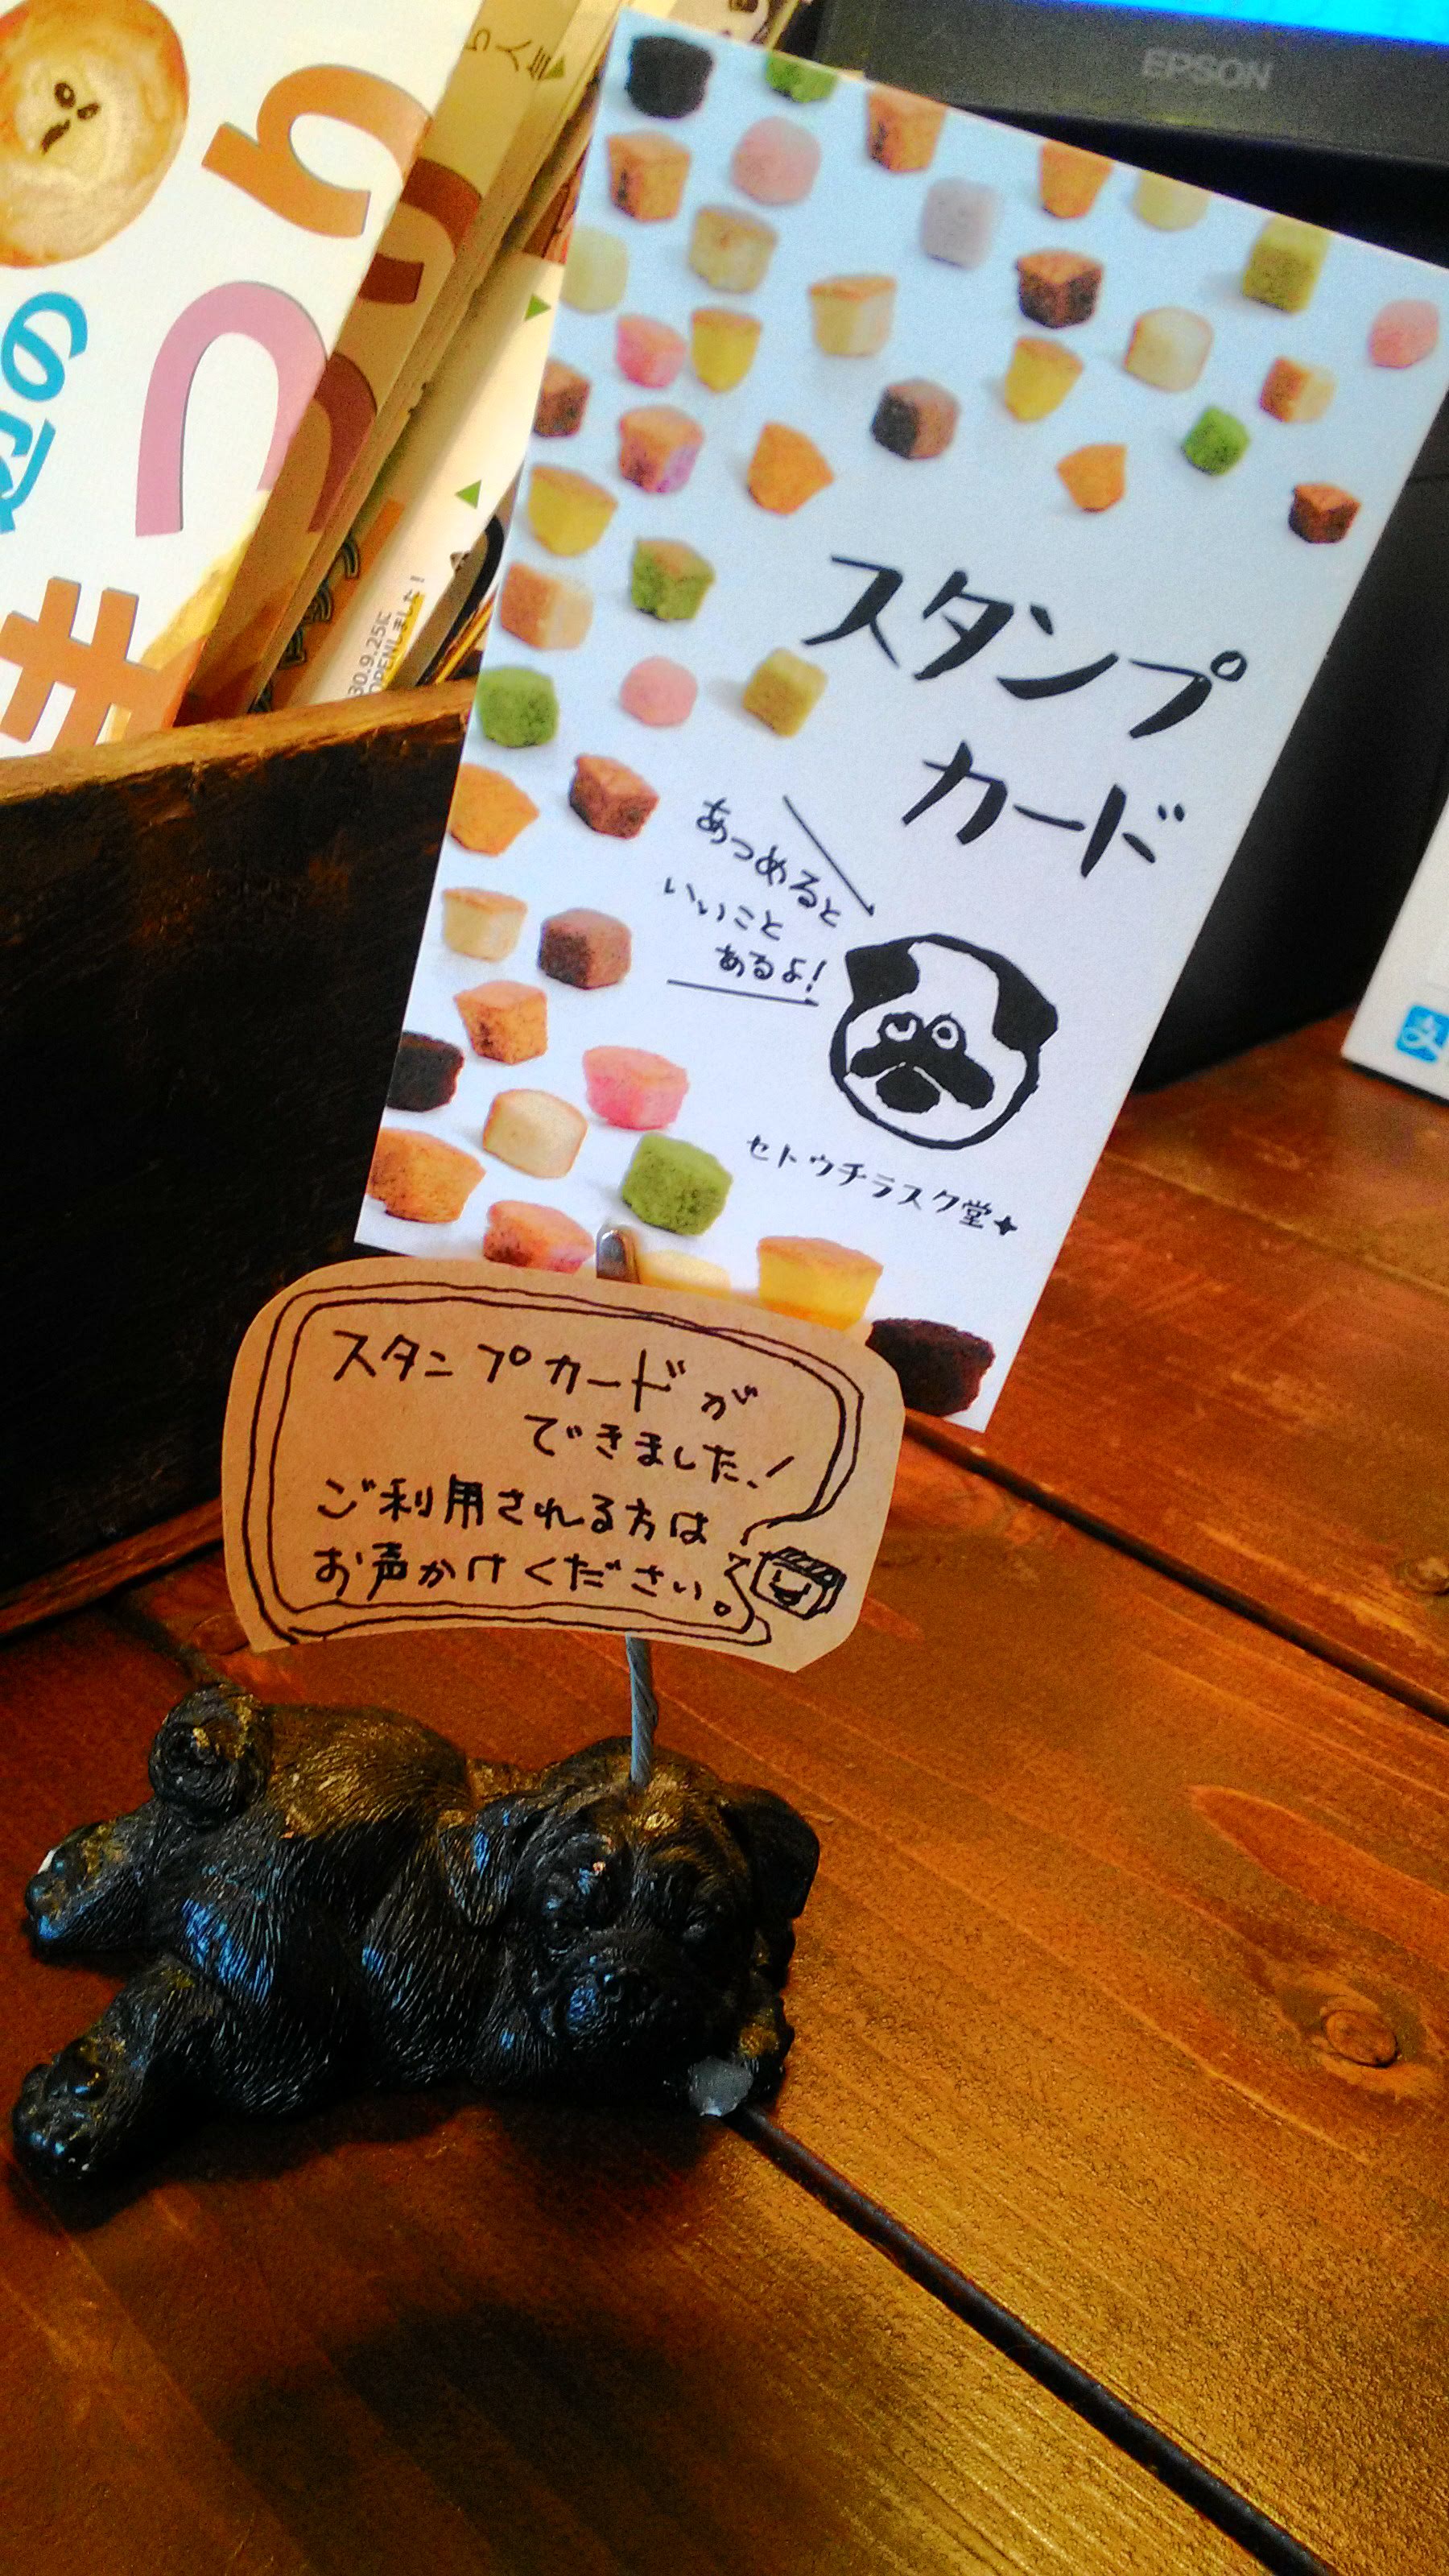 EPSON
スタンプ
カード
あつめると
いいこと
あるよ!
セトウチラスク堂
スタンプカードが
できました!
ご利用される方は
お声かけください。
まつり
の
30.9.25に
OPENしました!